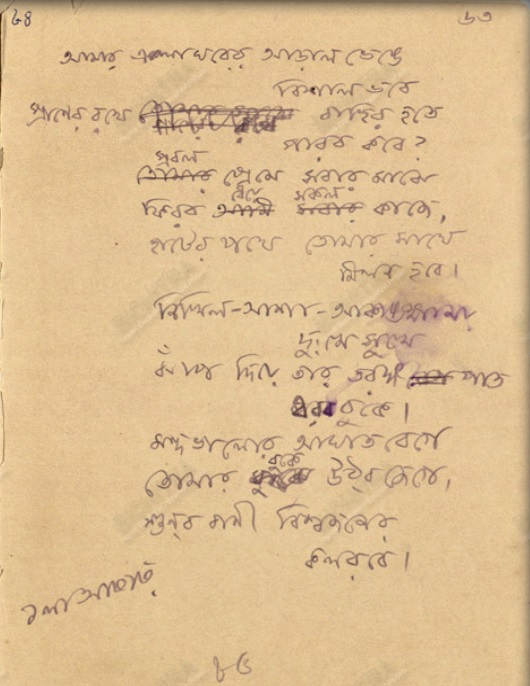 ৮৪
৬৩
আমার একলা ঘরের আড়াল ভেঙে
বিশাল ভবে
প্রাণের রথে বাহির হতে
পারব কবে?
প্রবল
তোমার প্রেমে সবার মাঝে
ফিরব আমি ধেয়ে সবার সকল কাজে,
হাটের পথে তোমার সাথে
মিলন হবে।
নিখিল-আশা-আকাঙ্ক্ষাময়
দুঃখে সুখে
ঝাঁপ দিয়ে তার তরঙ্গ পাত
ধরব বুকে।
মন্দভালোর আঘাতবেগে
তোমার বুকে উঠব জেগে,
শুনব বাণী বিশ্বজনের
কলরবে।
১লা আষাঢ়